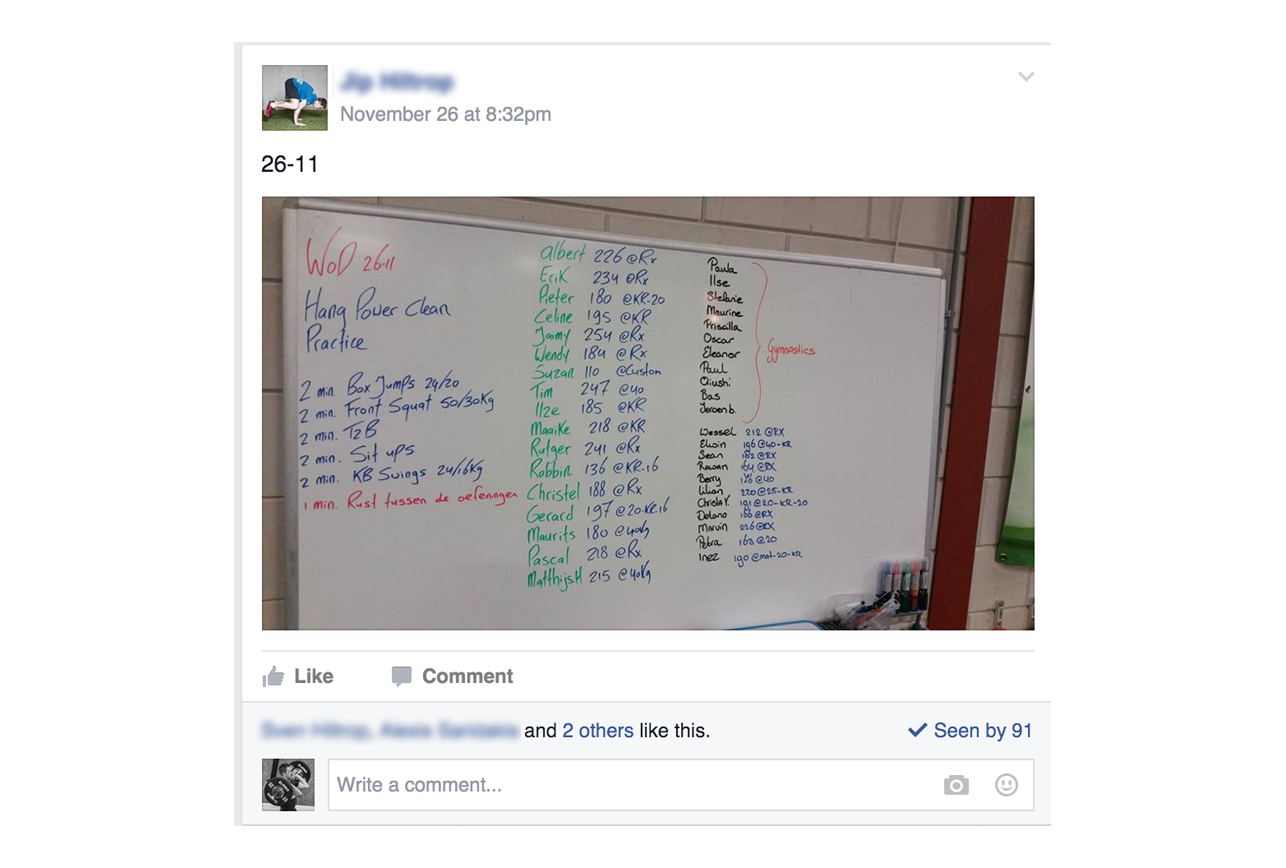 November 26 at 8:32pm
26-11
WOD 26-11
Hang Power Clean
Practice
2 min. Box Jumps 24/20
2 min. Front Squat 50/30kg
2 min. T2B
2 min. Sit ups
2 min. KB Swings 24/16kg
1 min. Rust tussen de oefeningen
Albert 226 @Rx
Erik 234 @Rx
Pieter 180 @KR-20
Celine 195 @KR
Jaimy 254 @Rx
Wendy 184 @Rx
Suzan 110 @Custom
Tim 247 @40
Ilze 185 @KR
Maaike 218 @KR
Rutger 241 @Rx
Robbin 136 @KR-16
Christel 188 @Rx
Gerard 197 @20-KR.16
Maurits 180 @40kg
Pascal 218 @Rx
Matthijs.H 215 @40kg
Paula
Ilse
Stefanie
Maurine
Priscilla
Oscar
Eleanor
Paul
Qiushi
Bas
Jeroen b.
Gymnastics
Wessel 212 @RX
Elwin 196 @40-KR
Sean 182 @RX
Rowan 164 @RX
Berry 176 @40
Lilian 220 @25-KR
Christa V. 191 @20-KR-20
Delano 166 @RX
Marvin 226 @RX
Petra 163 @20
Inez 190 @mat-20-KR
Like
Comment
and 2 others like this.
Seen by 91
Write a comment...